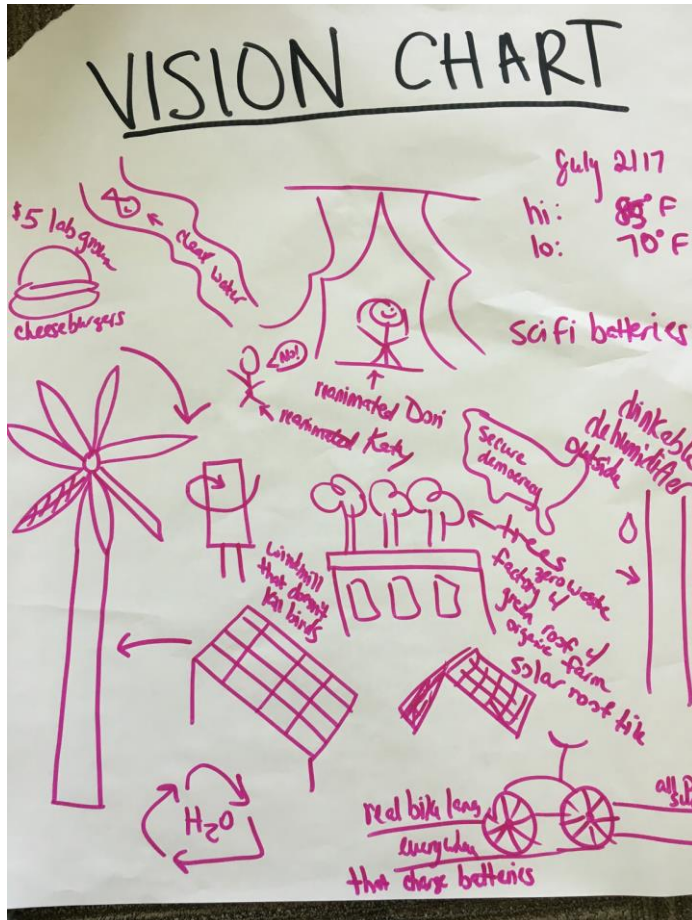 VISION CHART
July 2117
hi: 85° F
lo: 70° F
$5 lab grown
cheeseburgers
clean water
scifi batteries
No!
reanimated Dori
reanimated Katy
secure
democracy
drinkable
dehumidifier
outside
windmill
that doesn't
kill birds
trees
zero waste
factory w/
green roof w/
organic farm
solar roof tile
H₂O
real bike lanes
everywhere
that charge batteries
all